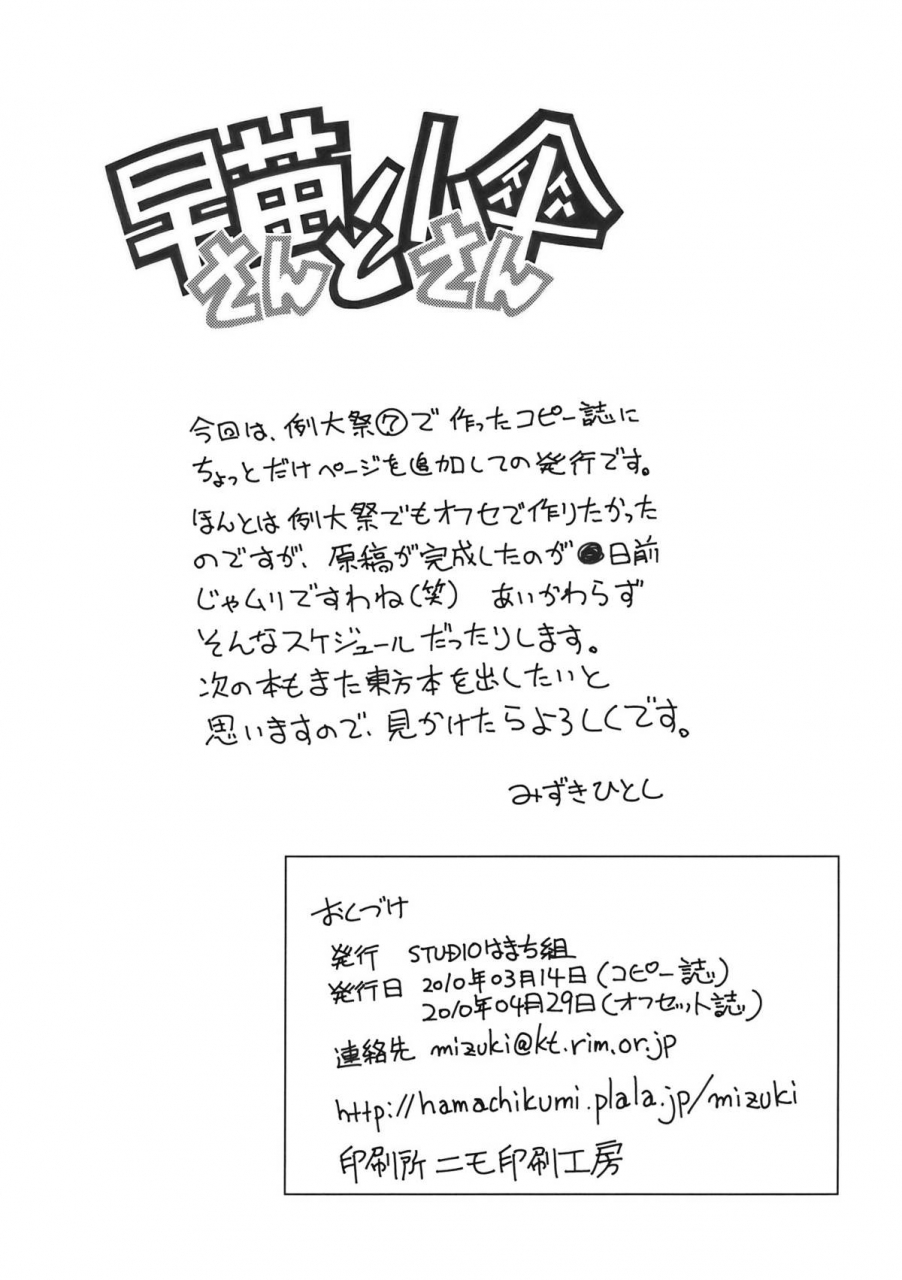 早苗さんと小傘さん
今回は、例大祭⑦で作ったコピー誌に
ちょっとだけページを追加しての発行です。
ほんとは例大祭でもオフセで作りたかった
のですが、原稿が完成したのが●日前
じゃムリですわね(笑) あいかわらず
そんなスケジュールだったりします。
次の本もまた東方本を出したいと
思いますので、見かけたらよろしくです。
みずきひとし
おくづけ
発行 STUDIOはまち組
発行日 2010年03月14日(コピー誌)
2010年04月29日(オフセット誌)
連絡先 mizuki@kt.rim.or.jp
http://hamachikumi.plala.jp/mizuki
印刷所 ニモ印刷工房